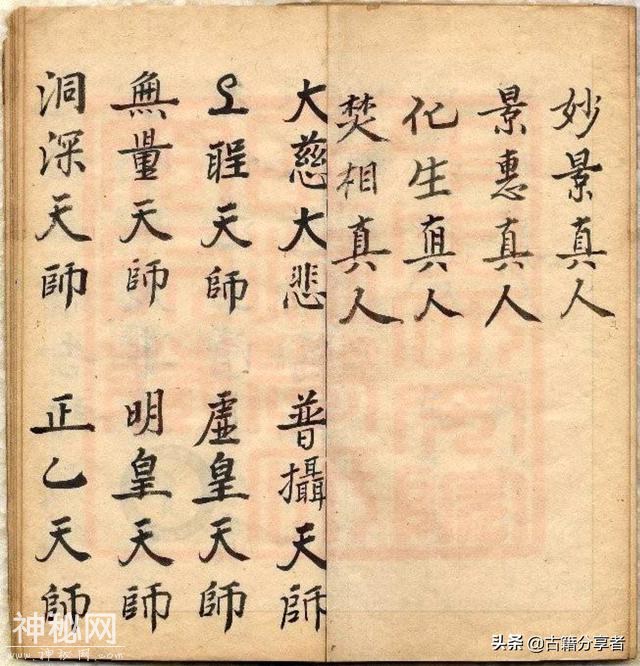 妙景真人
景惠真人
化生真人
焚相真人
大慈大悲 普攝天師
天師 虛皇天師
無量天師 明皇天師
洞深天師 正乙天師
神秘网
头条 @古籍分享者